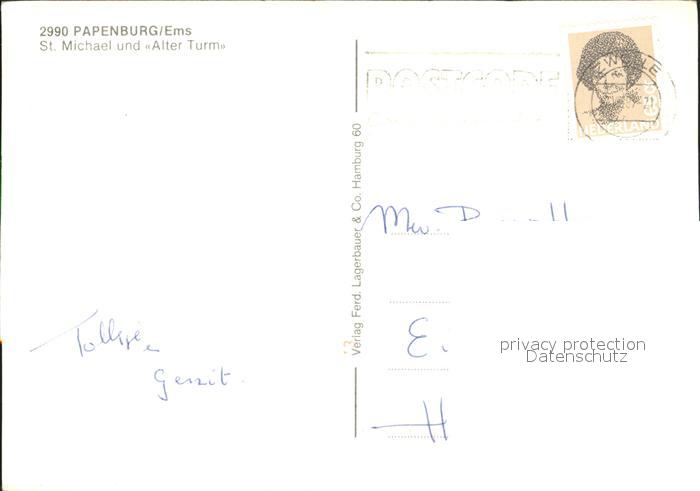 2990 PAPENBURG/Ems
St. Michael und «Alter Turm»
POSTCODE
ZWOLLE
NEDERLAND
Verlag Ferd. Lagerbauer & Co. Hamburg 60
Mw. D
E
H
privacy protection
Datenschutz
Gerrit.